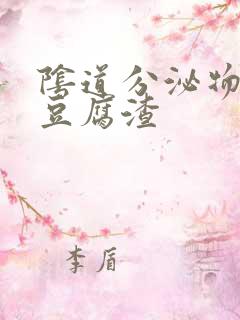 陰道分泌物
豆腐渣
李盾